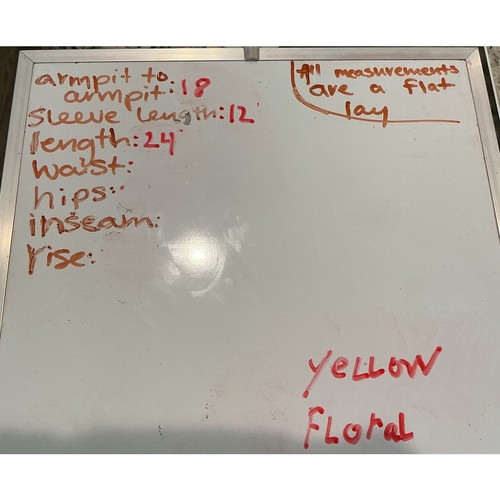 armpit to
armpit: 18
sleeve length: 12
length: 24
waist:
hips:
inseam:
rise:
All measurements
are a flat
lay
YELLOW
FLoral